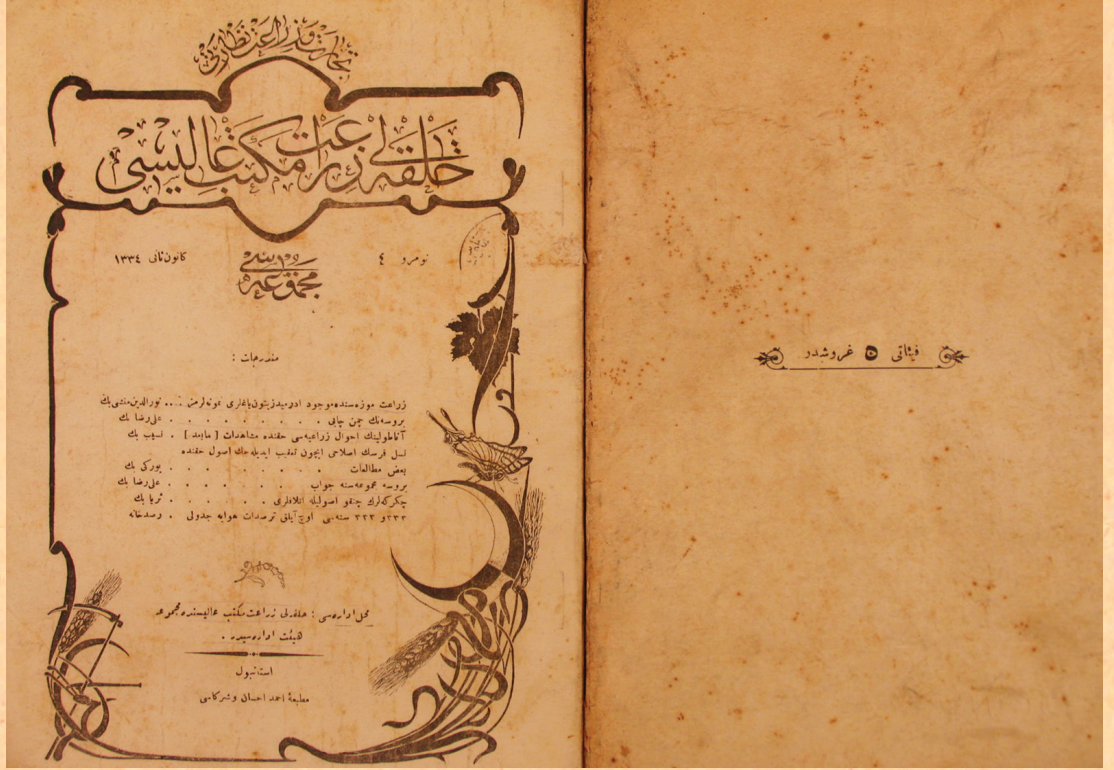 تجارت و زراعت نظارتی
خلقه‌لی زراعت مکتب عالیسی
نومرو ٤
مجموعه‌سی
كانون ثانی ١٣٣٤
مندرجات :
زراعت موزه‌سنده موجود ادرمید زیتون یاغلری نمونه‌لرمز . . . نورالدین منشی بك
بروسه‌نك چمن چایی . . . . . . . . علی رضا بك
آناطولینك احوال زراعیه‌سی حقنده مشاهدات [ مابعد ] . نسیب بك
نسل فرسك اصلاحی ایچون تعقیب ایدیله‌جك اصول حقنده
بعض مطالعات . . . . . . . . یورکی بك
بروسه مجموعه‌سنه جواب . . . . . . . علی رضا بك
چكرگه‌لرك چنقو اصولیله اتلافلری . . . . . . ثریا بك
٣٣٢ و ٣٣٣ سنه‌سی اوچ آیلق ترصدات هوائیه جدولی . رصدخانه
محل اداره‌سی : خلقه‌لی زراعت مکتب عالیسنده مجموعه
هیئت اداره‌سیدر .
استانبول
مطبعهٔ احمد احسان و شركاسی
فیئاتی ٥ غروشدر